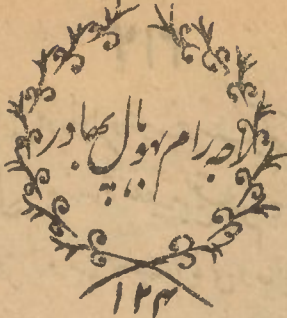 راجہ رام بھوپال بہادر
۱۲۳